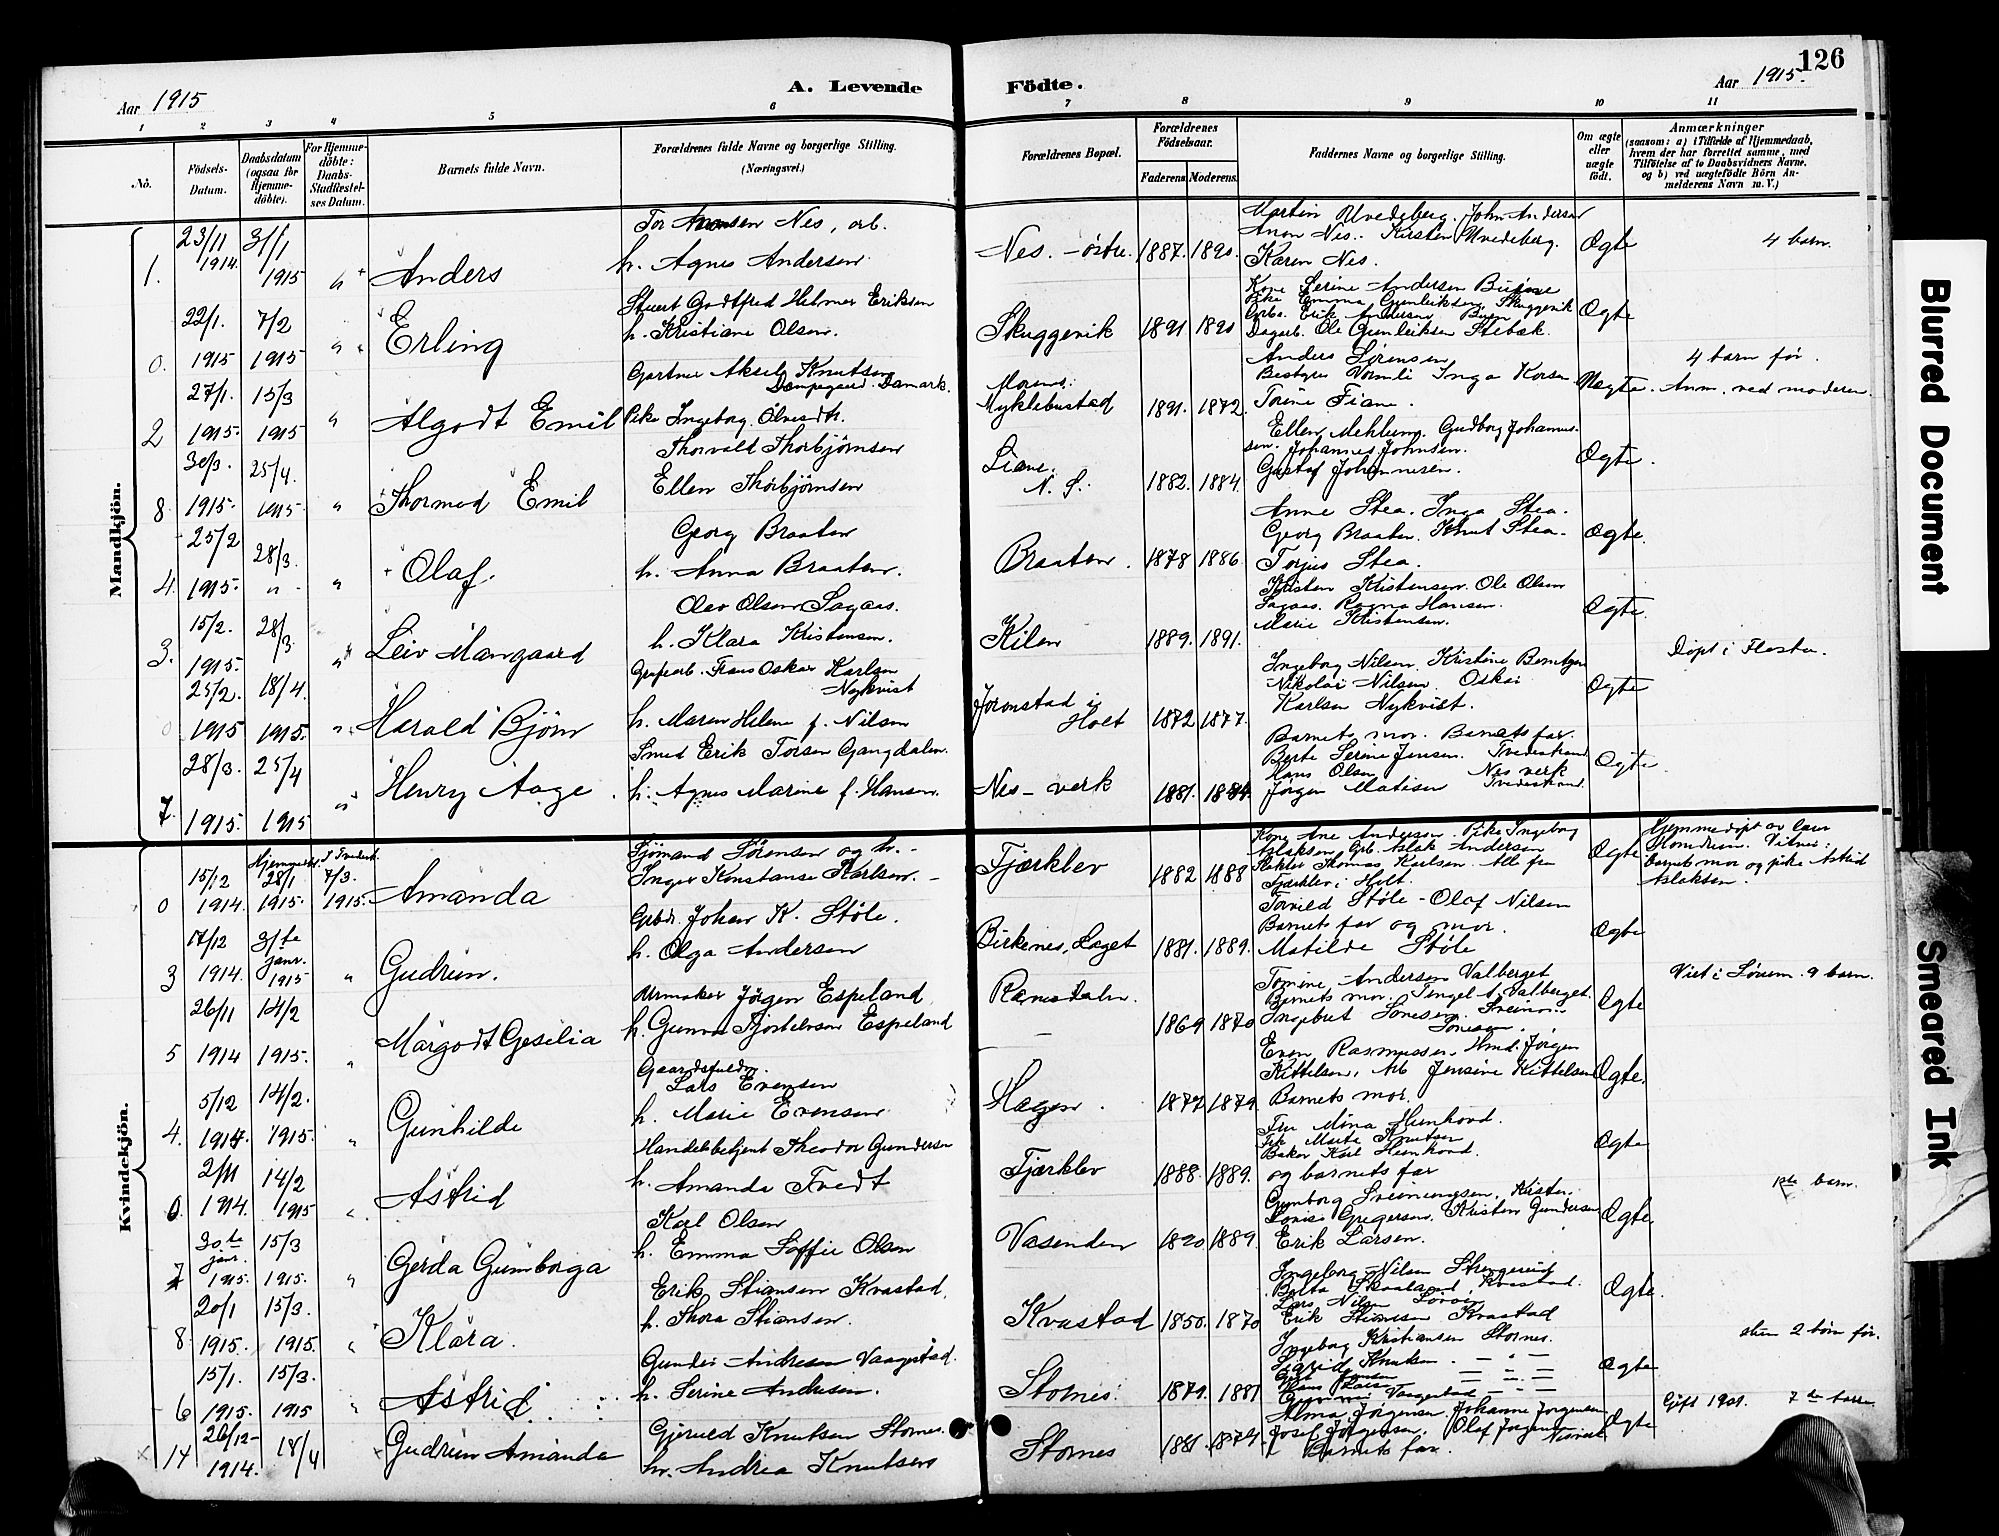 126
Aar 1915
A. Levende
Födte.
Aar 1915.
1 2 3 4 5 6 7 8 9 10 11
No.
Födsels-Datum.
Daabsdatum (ogsaa for Hjemme-döbte).
For Hjemme-döbte: Daabs-Stadfæstelses Datum.
Barnets fulde Navn.
Forældrenes fulde Navne og borgerlige Stilling.
(Næringsvei.)
Forældrenes Bopæl.
Forældrenes Födselsaar.
Faderens. Moderens.
Faddernes Navne og borgerlige Stilling.
Om ægte eller uægte födt.
Anmærkninger
(saasom: a) i Tilfælde af Hjemmedaab, hvem der har forrettet samme, med Tilföielse af to Daabsvidners Navne. og b) ved uægtefödte Börn Anmelderens Navn m. V.)
Mandkjön.
1. 23/11 1914 31/1 1915 " Anders
Tor Aanonsen Nes, arb.
h. Agnes Andersen
Nes - østre. 1887. 1890.
Martin Uvedeberg. John Andersen
Anon Nes. Kirsten Uvedeberg.
Karen Nes.
Ægte
4 barn.
0. 22/1. 1915 7/2 1915 " Erling
Stuert Godtfred Helmer Eriksen
h. Kristiane Olsen.
Skuggevik 1891 1890
Kone Serine Andersen
Pike Emma Gunleiksen Skuggevik
Arb. Erik Andersen
Dagarb. Ole Gunleiksen
Ægte
2 27/1. 1915. 15/3 1915 " Algodt Emil
Gartner Aksel Knutsen
Danmark.
Pike Ingeborg Olvesdtr.
Morens:
Myklebustad 1891. 1872.
Anders Sørensen
Bestyrer Inga
Torine Fiane.
Uægte.
4 barn før.
Anm. ved moderen
8. 30/3. 1915. 25/4. 1915. " Thormod Emil
Thorvald Thorbjørnsen
Ellen Thorbjørnsen
Liane.
N. S. 1882. 1884.
Ellen Mehlum. Gudborg Johannes-
sen. Johannes Johnsen.
Gustaf Johannesen.
Ægte.
4. 25/2 1915. 28/3. " " Olaf.
Georg Braaten
h. Anna Braaten.
Braaten. 1878 1886.
Anne Stea. Inga Stea.
Georg Braaten. Knut Stea.
Torjus Stea.
Ægte.
3. 15/2. 1915. 28/3. " Leiv Mangaard
Olav Olsen Sagaas.
h. Klara Kristensen.
Kilen 1889. 1891.
Kristen Kristensen. Ole Olsen
Sagaas. Ragna Hansen.
Marie Kristensen.
Ægte.
0 25/2. 1915 18/4. 1915. " Harald Bjørn
Grubearb. Frans Oskar Karlsen
Nykvist
h. Maren Helene f. Nilsen
Joronstad i
Holt 1872 1877.
Ingeborg Nilsen. Kristine Berntsen
Nikolai Nilsen. Oskar
Karlsen Nykvist.
Ægte
Døpt i Flosta.
7. 28/3. 1915. 25/4 1915 " Henry Aage
Smed Erik Torsen Gangdalen.
h. Agnes Marine f. Hansen.
Nes - verk 1881. 1884.
Barnets mor. Barnets far.
Berte Serine Jensen. Tvedestrand
Hans Olsen Nes verk
Jørgen Matisen Tvedestrand.
Ægte.
Kvindekjön.
0 15/12 1914. Hjemmed. 28/1 1915. 7/3. 1915. Amanda
Sjömand Sørensen og h.
Inger Konstanse Karlsen.
Fjærklev 1882 1888
Kone Ane Andersen. Pike Ingeborg
Aslaksen. Arb. Aslak Andersen
Slakter Thomas Karlsen. Alle fra
Fjærklev i Holt.
Ægte
Hjemmedøpt av lærer
Homdrum. Vitner:
barnets mor og pike Astrid
Aslaksen.
3 17/12 1914. 31te janr. 1915 " Gudrun.
Grbr. Johan K. Støle.
h. Olga Andersen
Birkenes, Laget 1881. 1889.
Torvild Støle - Olaf Nilsen
Barnets far og mor.
Matilde Støle
Ægte
5 26/11 1914 14/2 1915. " Margodt Gesilia
Urmaker Jörgen Espeland
h. Gunvor Espeland
Ramsdalen. 1869 1870
Tomine Andersen Valberget
Barnets mor. Tengel A. Valberget.
Ingebret Tønesen.
Tönesen.
Ægte
Viet i Lörum. 9 barn.
4. 5/12 1914. 14/2. 1915. " Gunhilde
Gaardsfuldm.
Lars Evensen
h. Marie Evensen
Hagen. 1877 1879
Even Rasmussen. Hmd. Jörgen
Kittelsen. Arb. Jensine Kittelsen
Barnets mor.
Ægte.
0. 2/11 1914. 14/2 1915 " Astrid
Handelsbetjent Theodor Gundersen
h. Amanda Tvedt
Fjærklev 1888. 1889.
Fru Mina Humhoved.
Frk. Marta Knutsen
Baker Karl
og barnets far
Ægte
1ste barn.
7 30te janr. 1915. 15/3 1915. " Gerda Gunborga
Karl Olsen
h. Emma Soffie Olsen
Vasenden 1890 1889.
Gunborg Sveinungsen. Kristen
Lovise Gregersen. Kristen Gundersen
Erik Larsen.
Ægte.
8 20/1 1915. 15/3. 1915. " Klara.
Erik Stiansen Kvastad.
h. Thora Stiansen.
Kvastad 1850. 1870
Ingeborg Nilsen
Berta Kvastad.
Lars Nilsen
Erik Stiansen Kvastad
Ægte.
6 15/1. 1915. 15/3. 1915 " Astrid
Gunder Andresen Vaagestad.
h. Serine Andresen.
Stomes. 1879. 1881
Ingeborg Kristiansen Stomes.
Sigrid Knutsen. - " -
Ægte
2 børn før.
14 26/12 - 1914. 18/4 Gudrun Amanda
Gjeruld Knutsen Stomes.
h. Andrea Knutsen
Stomes 1881. 1879.
Alma Jørgensen. Johanne Jørgensen
Josef Jørgensen. Olaf Jørgensen
Barnets far.
Ægte
Gift 1901. 7de barn
Blurred Document
Smeared Ink